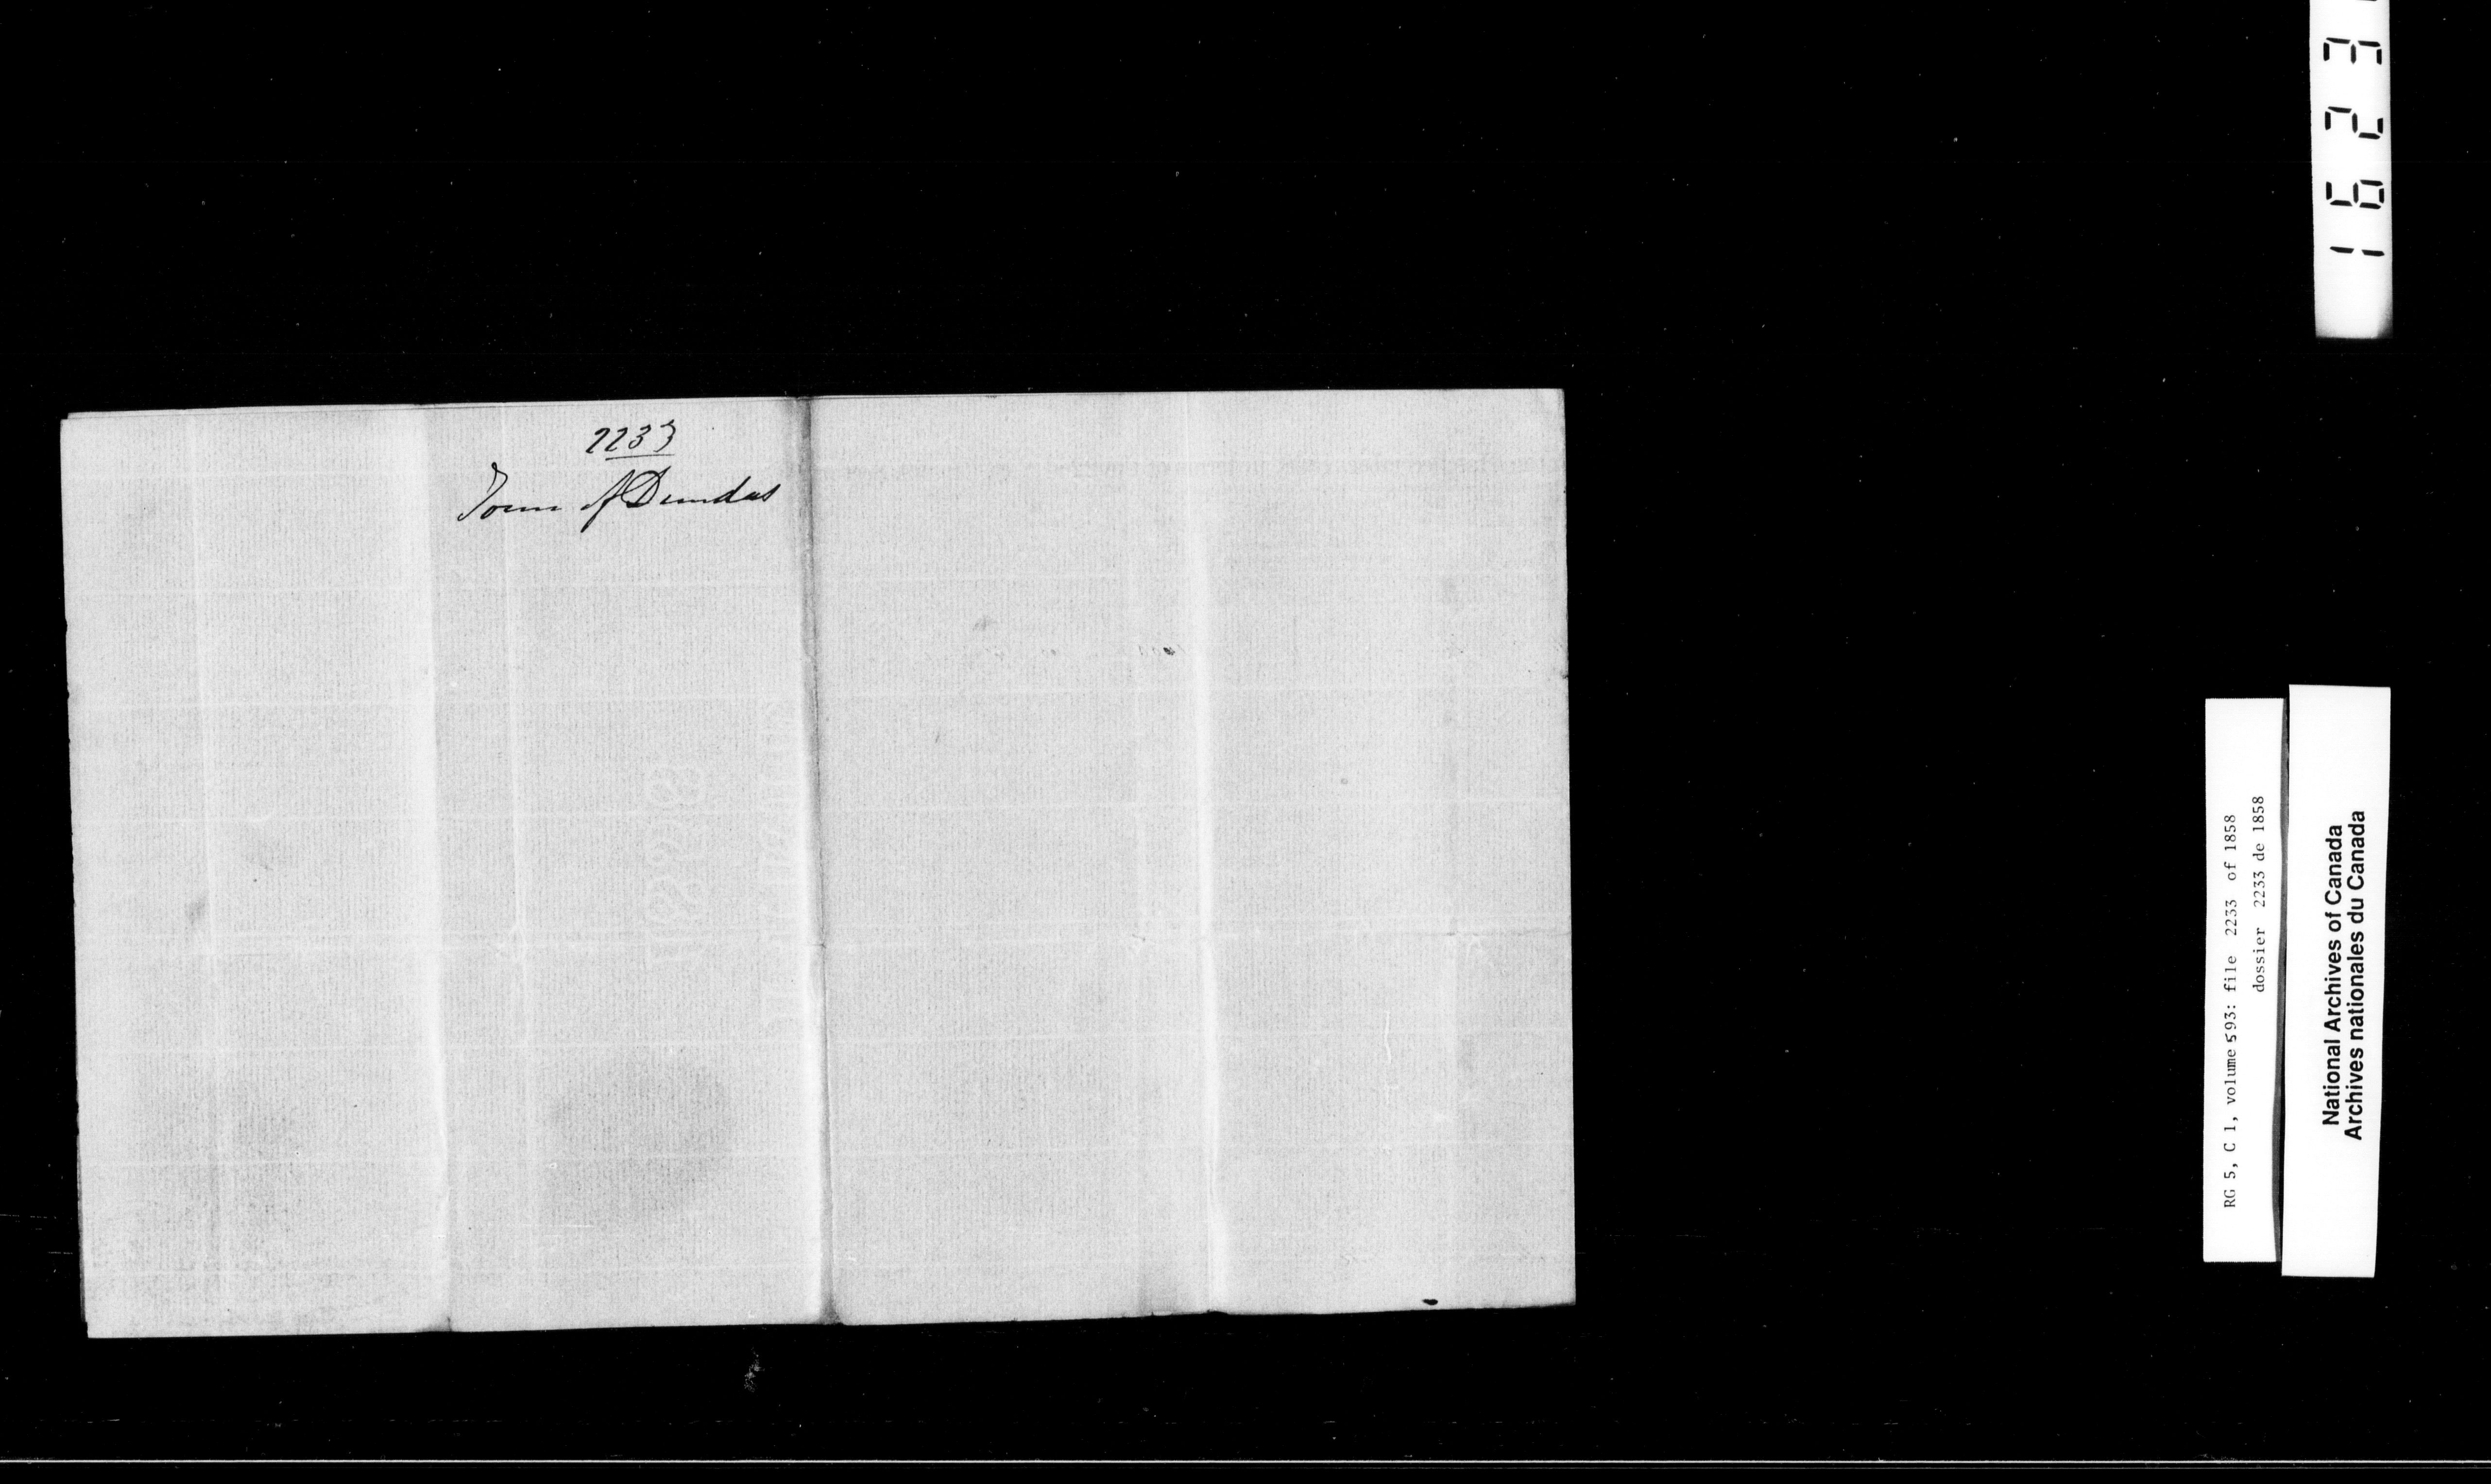 2233
Town of Dundas
1623
RG 5, C 1, volume 593: file 2233 of 1858
dossier 2233 de 1858
National Archives of Canada
Archives nationales du Canada